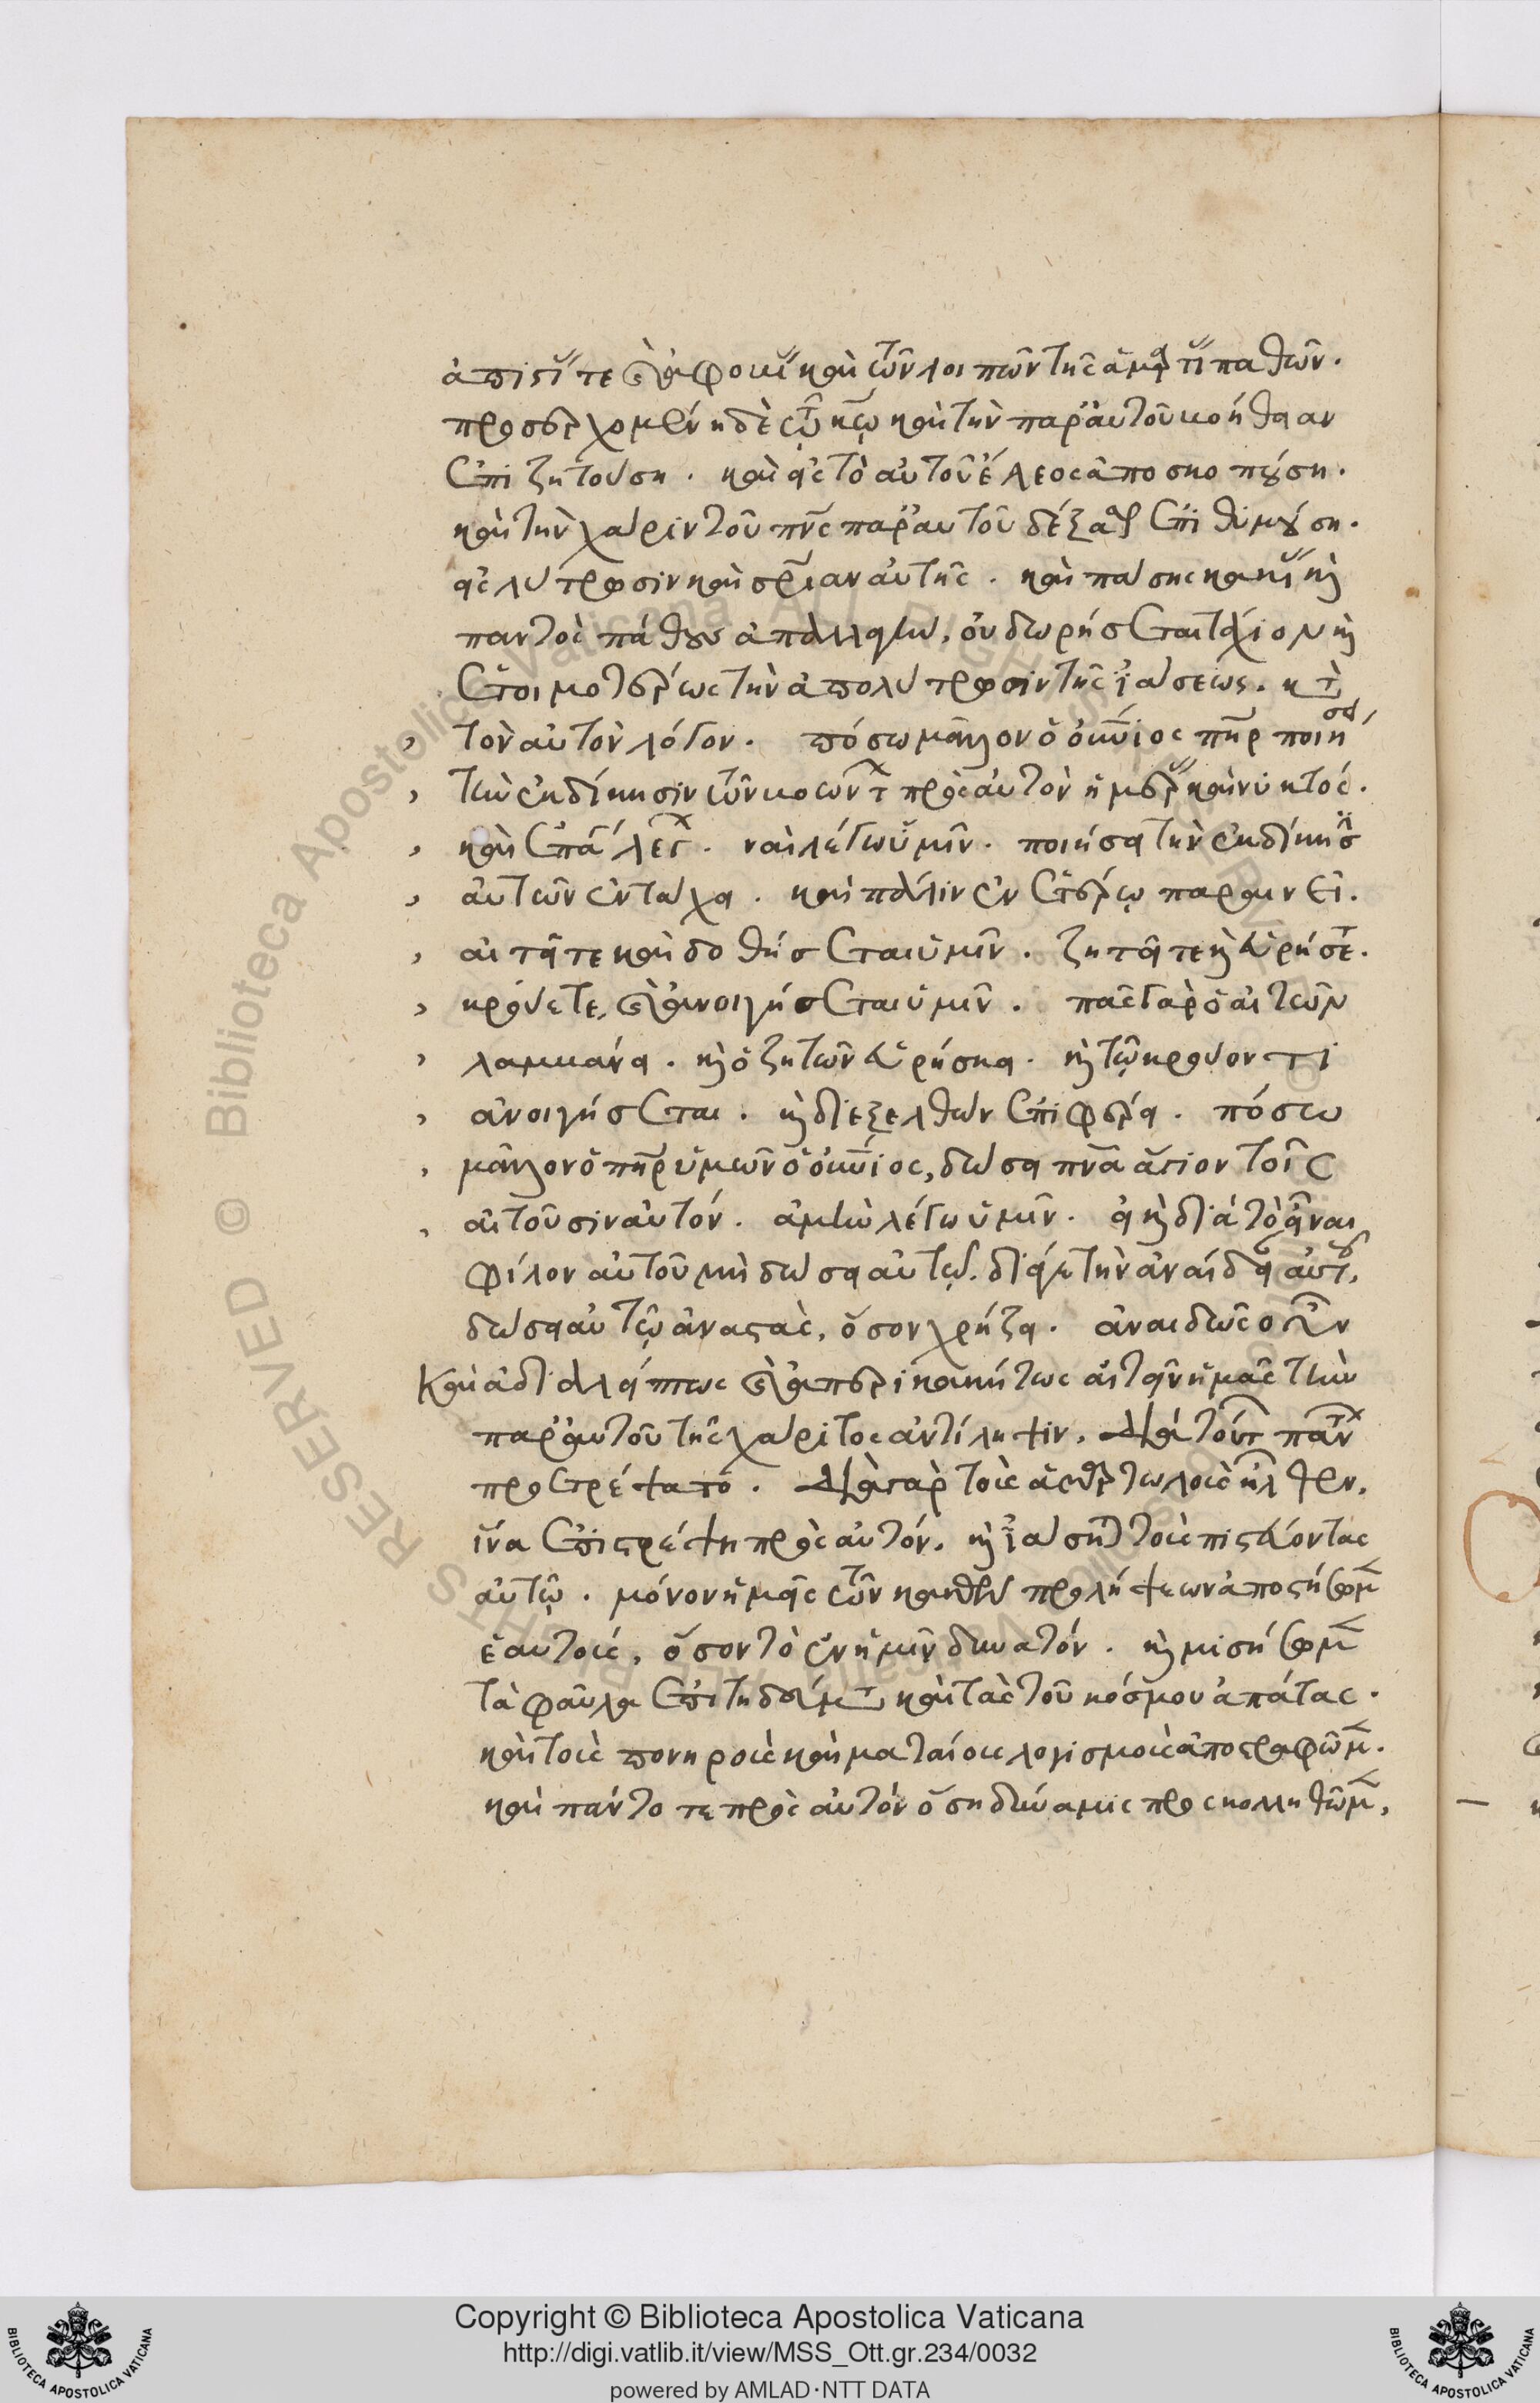 ἀπιστίας τε καὶ ἀφοβίας καὶ τῶν λοιπῶν τῆς ἁμαρτίας παθῶν.
προσερχομένη δὲ τῷ κῳ καὶ τὴν παρ' αὐτοῦ βοήθειαν
ἐπιζητοῦσῃ. καὶ εἰς τὸ αὐτοῦ ἔλεος ἀποσκοπούσῃ.
καὶ τὴν χάριν τοῦ πνς παρ' αὐτοῦ δέξασθαι ἐπιθυμούσῃ.
εἰς λύτρωσιν καὶ σρίαν αὐτῆς. καὶ πάσης κακίας καὶ
παντὸς πάθους ἀπαλλαγὴν, οὐ δωρήσεται τάχιον καὶ
ἑτοιμοτέρως τὴν ἀπολύτρωσιν τῆς ἰάσεως. κατὰ
τὸν αὐτὸν λόγον. πόσω μᾶλλον ὁ οὐνιος πηρ ποιήσει
τὴν ἐκδίκησιν τῶν βοώντων πρὸς αὐτὸν ἡμέρας καὶ νυκτός.
καὶ ἐπάγει λέγων. ναὶ λέγω ὑμῖν. ποιήσει τὴν ἐκδίκησιν
αὐτῶν ἐν τάχει. καὶ πάλιν ἐν ἑτέρῳ παραινεῖ.
αἰτεῖτε καὶ δοθήσεται ὑμῖν. ζητεῖτε καὶ εὑρήσετε.
κρούετε, καὶ ἀνοιγήσεται ὑμῖν. πᾶς γὰρ ὁ αἰτῶν
λαμβάνει. καὶ ὁ ζητῶν εὑρήσκει. καὶ τῷ κρούοντι
ἀνοιγήσεται. καὶ διεξελθὼν ἐπιφέρει. πόσω
μᾶλλον ὁ πηρ ὑμῶν ὁ οὐνιος, δώσει πνα ἅγιον τοῖς
αἰτοῦσιν αὐτόν. ἀμὴν λέγω ὑμῖν. εἰ καὶ διὰ τὸ εἶναι
φίλον αὐτοῦ μὴ δώσει αὐτῷ. διά γε τὴν ἀναίδειαν αὐτοῦ,
δώσει αὐτῷ ἀναστὰς, ὅσον χρήζει. ἀναιδῶς οὖν
Καὶ ἀδιαλείπτως καὶ ἀπερικακήτως αἰτεῖν ἡμᾶς τὴν
παρ' αὐτοῦ τῆς χάριτος ἀντίληψιν, διὰ τούτων πάντων
προετρέψατο. διὰ γὰρ τοὺς ἁμαρτωλοὺς ἦλθεν,
ἵνα ἐπιστρέψῃ πρὸς αὐτόν. καὶ ἰάσηται τοὺς πιστεύοντας
αὐτῷ. μόνον ἡμεῖς τῶν κακῶν προλήψεων ἀποστήσωμεν
ἑαυτοὺς, ὅσον τὸ ἐν ἡμῖν δυνατόν. καὶ μισήσωμεν
τὰ φαῦλα ἐπιτηδεύματα καὶ τὰς τοῦ κόσμου ἀπάτας.
καὶ τοῖς πονηροῖς καὶ ματαίοις λογισμοῖς ἀποστραφῶμεν.
καὶ πάντοτε πρὸς αὐτὸν ὅση δύναμις προσκολληθῶμεν,
Copyright © Biblioteca Apostolica Vaticana
http://digi.vatlib.it/view/MSS_Ott.gr.234/0032
powered by AMLAD·NTT DATA